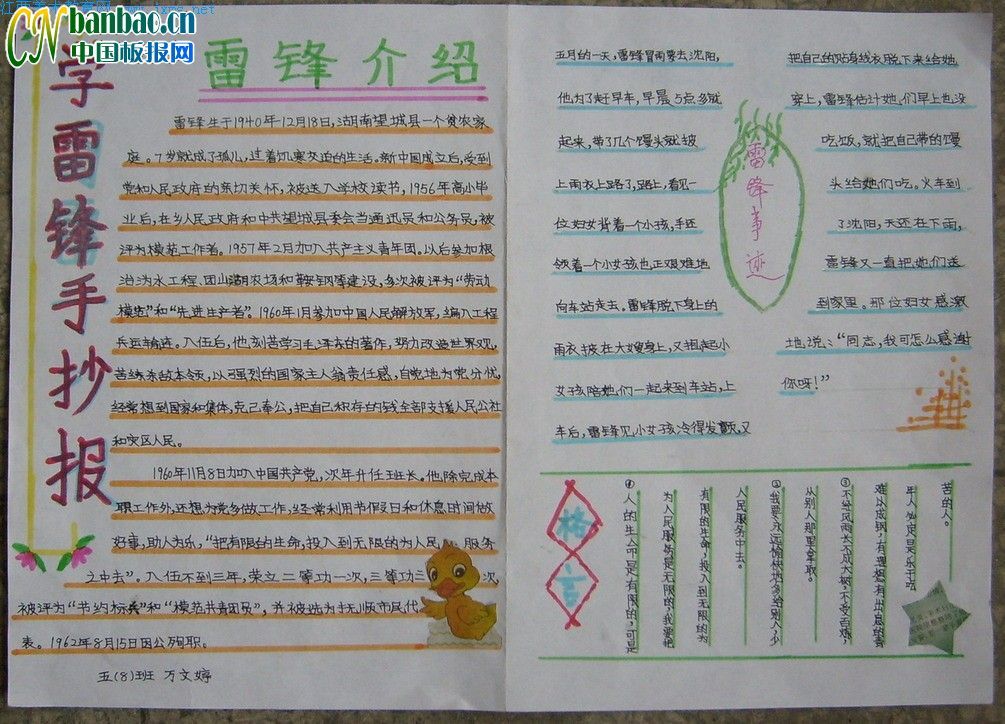 banbao.cn
中国板报网
学雷锋手抄报
雷锋介绍
雷锋生于1940年12月18日,湖南望城县一个贫农家
庭。7岁就成了孤儿,过着饥寒交迫的生活。新中国成立后,受到
党和人民政府的亲切关怀,被送入学校读书,1956年高小毕
业后,在乡人民政府和中共望城县委会当通迅员和公务员,被
评为模范工作者。1957年2月加入共产主义青年团。以后参加根
治沩水工程、团山湖农场和鞍钢等建设,多次被评为“劳动
模范”和“先进生产者”。1960年1月参加中国人民解放军,编入工程
兵运输连。入伍后,他刻苦学习毛泽东的著作,努力改造世界观,
苦练杀敌本领,以强烈的国家主人翁责任感,自觉地为党分忧,
经常想到国家和集体,克己奉公,把自己积存的钱全部支援人民公社
和灾区人民。
1960年11月8日加入中国共产党,次年升任班长。他除完成本
职工作外,还想为党多做工作,经常利用节假日和休息时间做
好事,助人为乐,“把有限的生命,投入到无限的为人民服务
之中去”。入伍不到三年,荣立二等功一次,三等功三次,
被评为“节约标兵”和“模范共青团员”,并被选为抚顺市民代
表。1962年8月15日因公殉职。
五(8)班 万文婷
五月的一天,雷锋冒雨要去沈阳,
他为了赶早车,早晨5点多就
起来,带了几个馒头就披
上雨衣上路了,路上,看见一
位妇女背着一个小孩,手还
领着一个小女孩也正艰难地
向车站走去。雷锋脱下身上的
雨衣披在大嫂身上,又抱起小
女孩陪她们一起来到车站,上
车后,雷锋见小女孩冷得发颤,又
雷锋事迹
把自己的贴身线衣脱下来给她
穿上,雷锋估计她们早上也没
吃饭,就把自己带的馒
头给她们吃。火车到
了沈阳,天还在下雨,
雷锋又一直把她们送
到家里。那位妇女感激
地说:“同志,我可怎么感谢
你呀!”
格言
①人的生命是有限的,可是
为人民服务是无限的,我要把
有限的生命,投入到无限的为
人民服务中去。
②我要永远愉快地多给别人,少
从别人那里拿取。
③不经风雨,长不成大树,不受百炼,
难以成钢,有理想有出息的青
年人必定是乐于吃
苦的人。